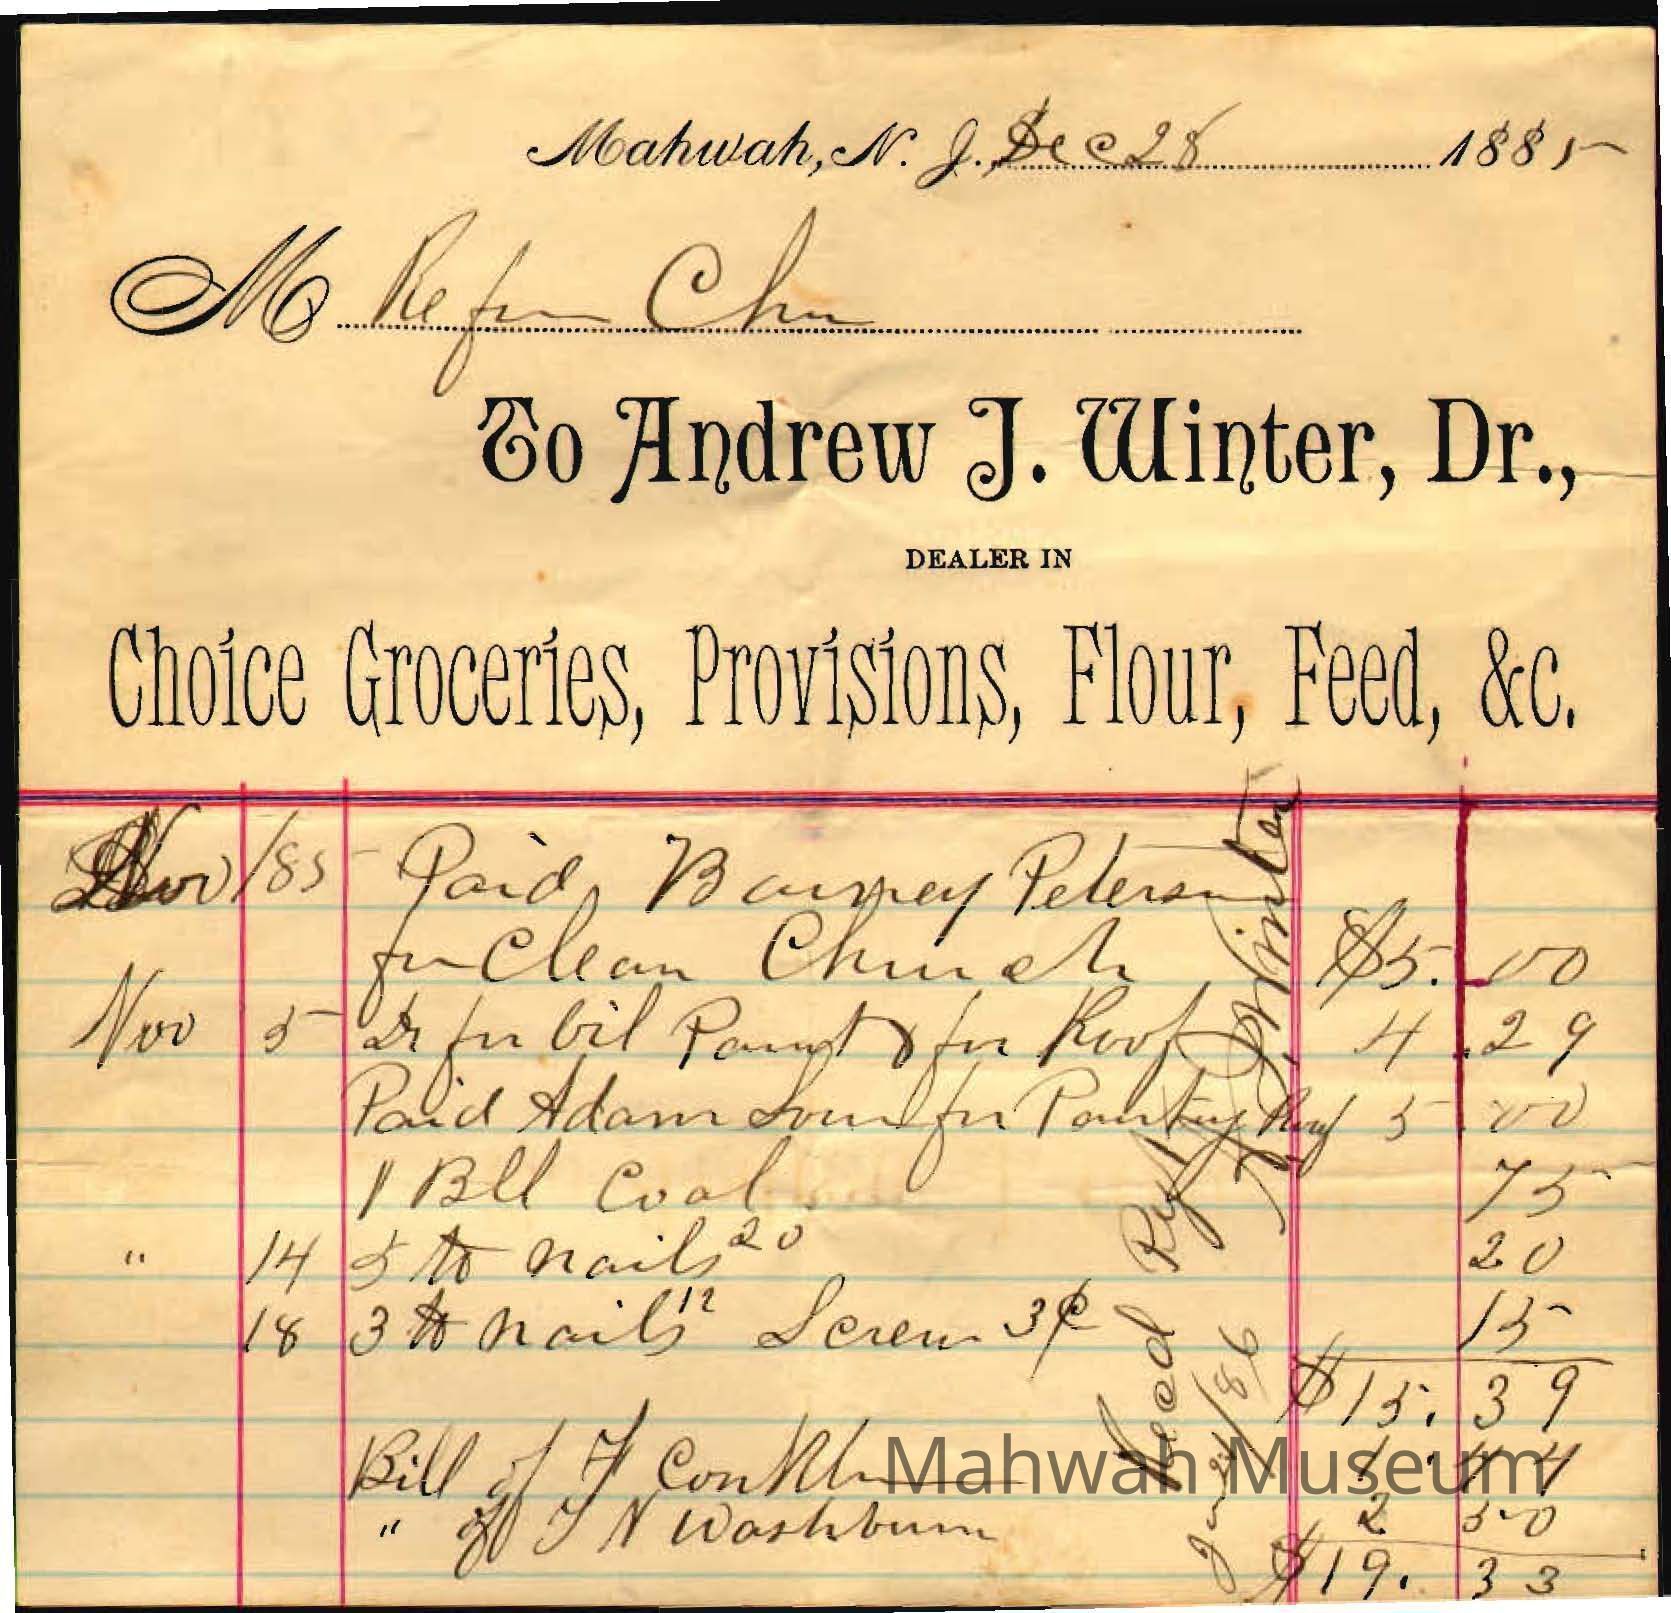 Mahwah, N. J., Dec 28 1885
M Refm Chu
To Andrew J. Winter, Dr.,
DEALER IN
Choice Groceries, Provisions, Flour, Feed, &c.
Nov /85 Paid Barney Peterson
for Clean Church $5.00
Nov 5 Dr for Oil Paint & for Roof 4.29
Paid Adam for Painting Roof 5.00
1 Bll Coal 75
" 14 5 lb nails 20 20
18 3 lb nails 12 Screw 3¢ 15
$15.39
Bill of F Conklin 1.44
" of T N Washburn 2 50
$19.33
Recd Pyt A J Winter
Jan 21/86
Mahwah Museum